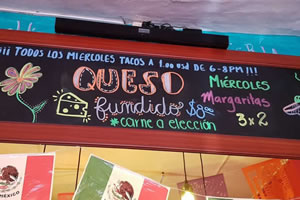 ¡¡¡ TODOS LOS MIERCOLES TACOS A 1.00 usd DE 6-8PM !!!
QUESO
fundido $8.00
*carne a elección
MIÉRCOLES
Margaritas
3x2
MÉXICO